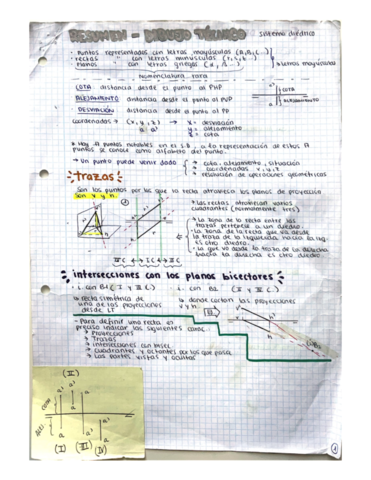 RESUMEN - DIBUJO TÉCNICO
sistema diédrico
· Puntos representados con letras mayúsculas (A, B, C...)
· rectas " con letras minúsculas (r, s, t...)
· Planos " con letras griegas (α, β...)
letras mayúsculas
Nomenclatura
COTA distancia desde el punto al PH
ALEJAMIENTO distancia desde el punto al PV
DESVIACIÓN distancia desde el punto al PP
COTA
ALEJAMIENTO
coordenadas → (x, y, z) → x = desviación
y = alejamiento
z = cota
puntos notables en el S.D., a la representación de estos
puntos se conoce como alfabeto del punto.
→ un punto puede venir dado
→ cota, alejamiento, situación
coordenadas x, y, z
→ resolución de operaciones geométricas
trazas
Son los puntos por los que la recta atraviesa los planos de proyección
Son v y h.
→ Las rectas atraviesan varios
cuadrantes (normalmente tres)
→ La zona de la recta entre las
trazas pertenece a un diedro.
- La zona de la recta que va desde
la traza de la izquierda hacia la izq.
es otro diedro.
- La que va desde la traza de la derecha
hacia la derecha es otro diedro
II C ↔ I C ↔ IV C
intersecciones con los planos bisectores
· i. con B1 (I y III C.)
· i. con B2 (II y IV C.)
→ recta simétrica de
una de las proyecciones
desde LT
→ donde cortan las proyecciones
- Para definir una recta es
preciso indicar las siguientes caract.
→ Proyecciones
→ Trazas
→ intersecciones con bisec.
→ cuadrantes y octantes por los que pasa
→ Las partes vistas y ocultas
(II)
COTA
ALEJ.
(I)
(III)
(IV)